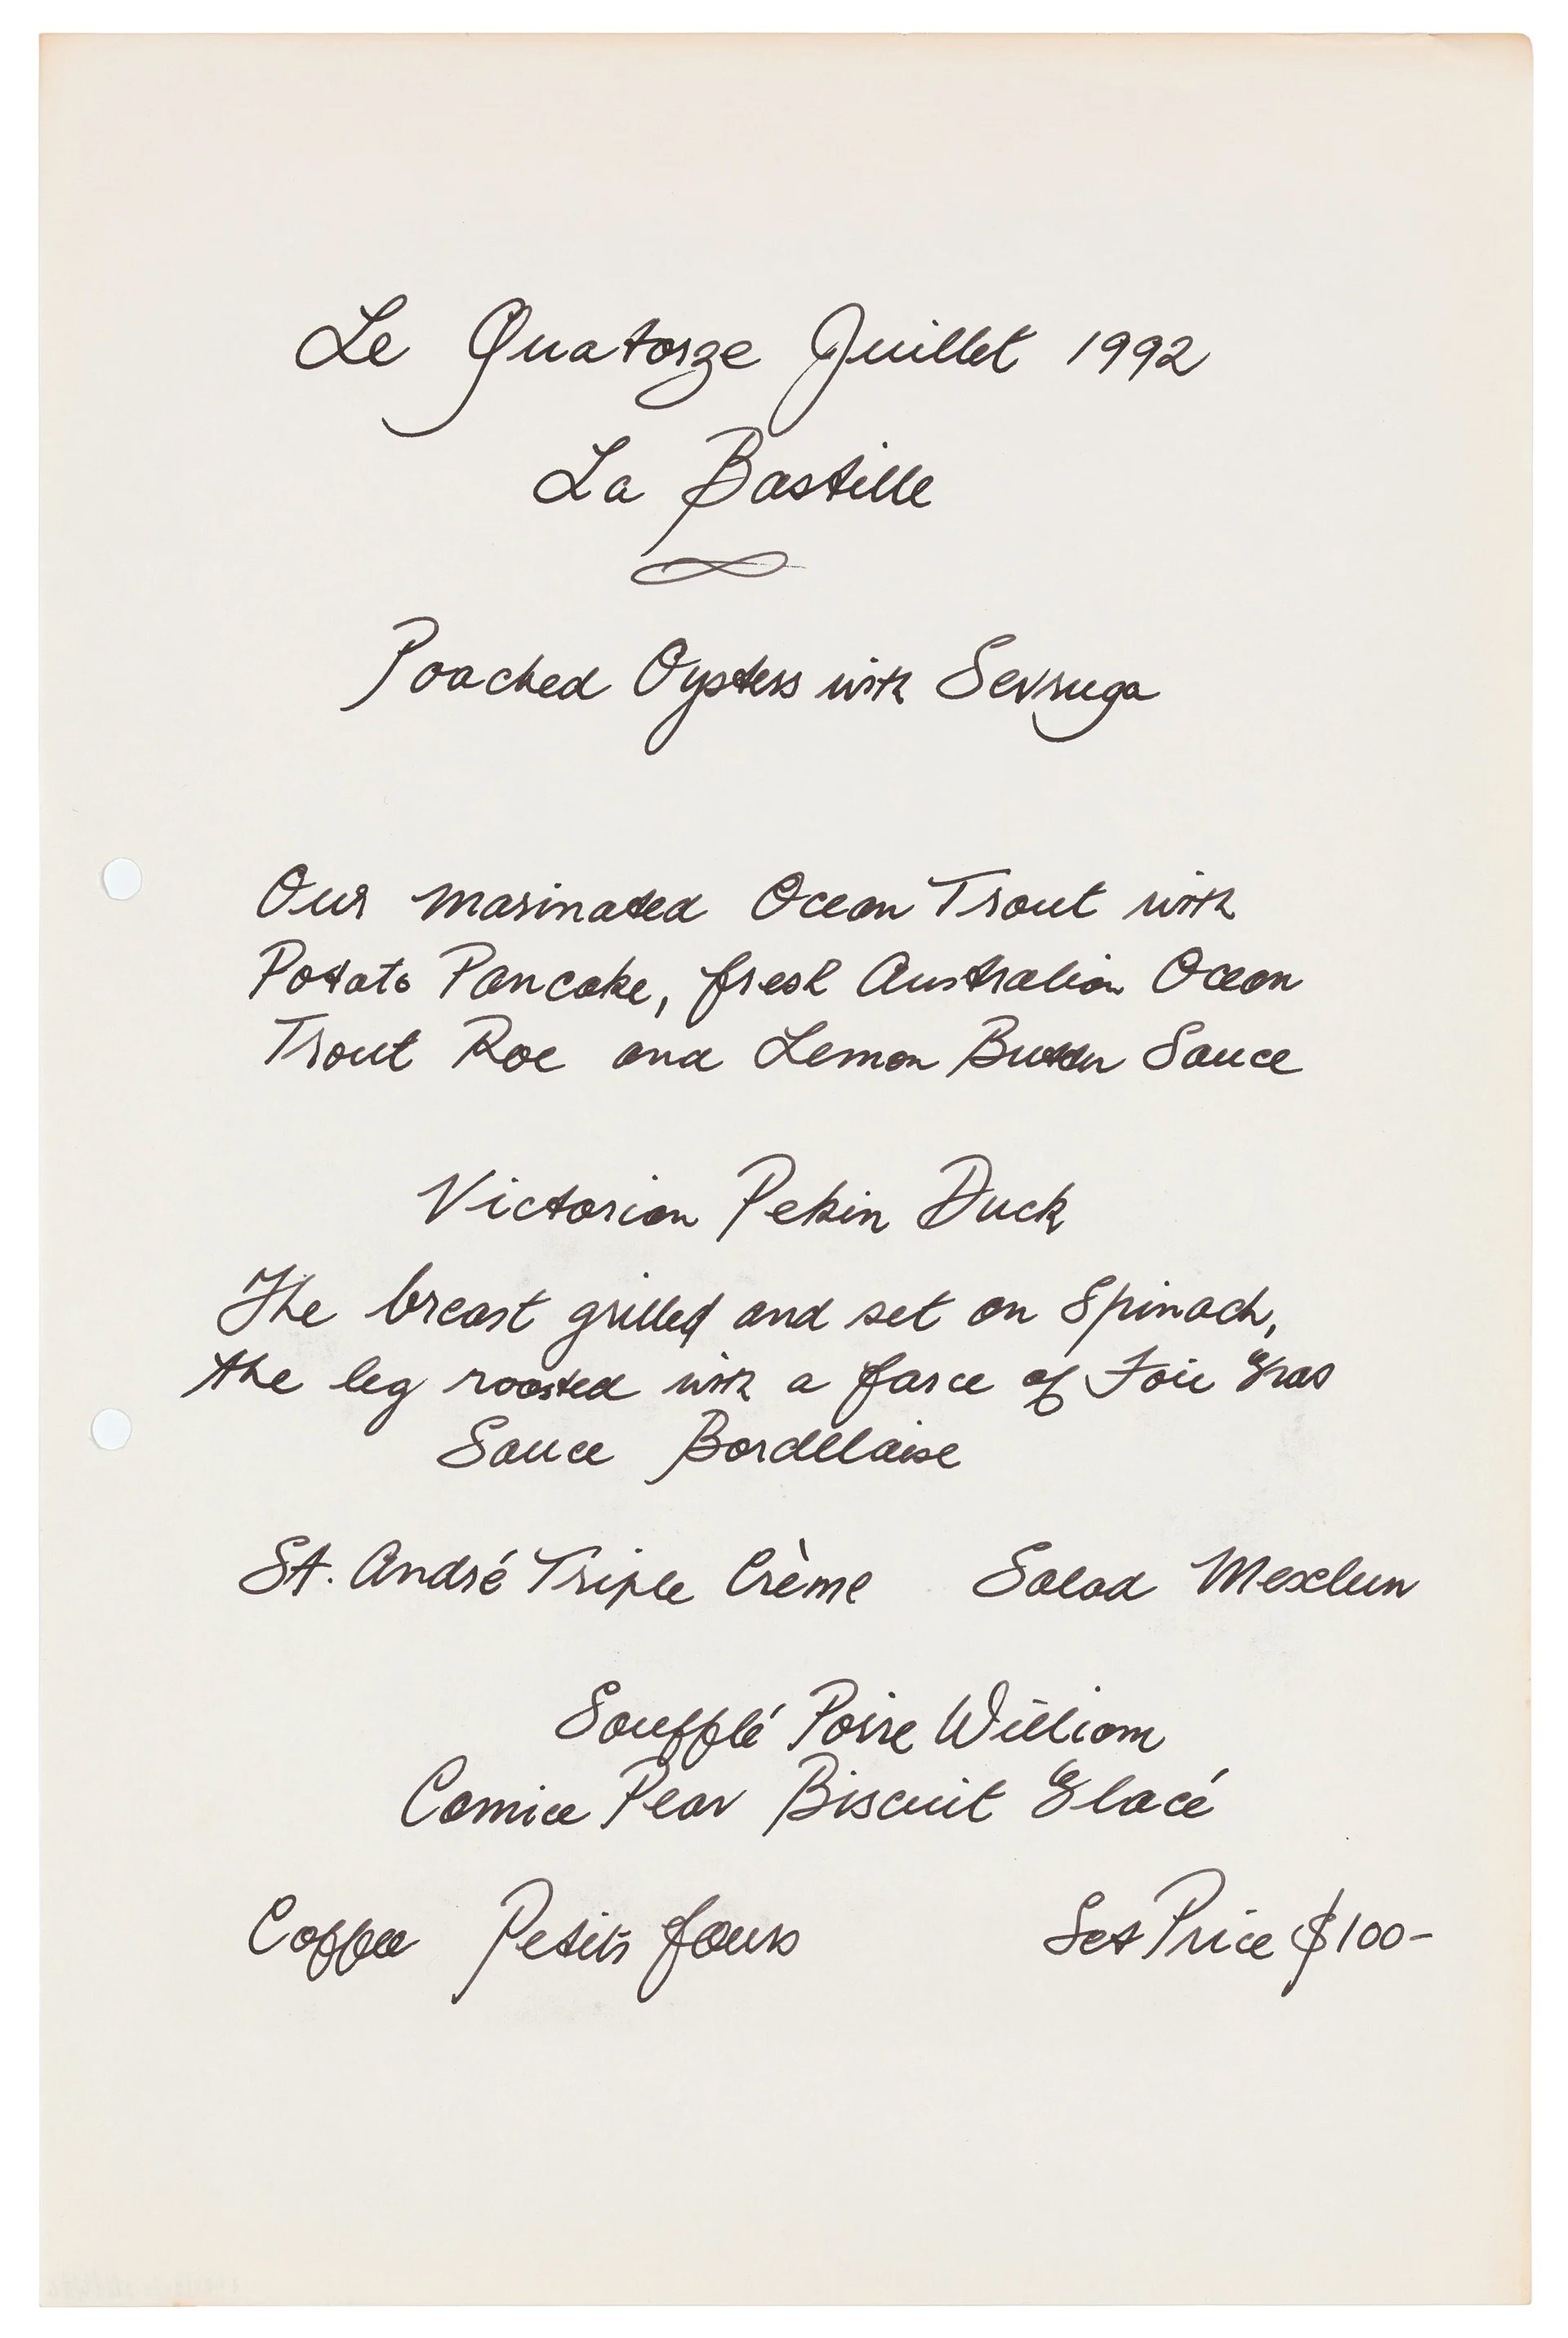 Le Quatorze Juillet 1992
La Bastille
Poached Oysters with Sevruga
Our marinated Ocean Trout with
Potato Pancake, fresh Australian Ocean
Trout Roe and Lemon Butter Sauce
Victorian Pekin Duck
The breast grilled and set on Spinach,
the leg roasted with a farce of Foie Gras
Sauce Bordelaise
St. André Triple Crème Salad Mesclun
Soufflé Poire William
Comice Pear Biscuit Glacé
Coffee Petits fours Set Price $100-